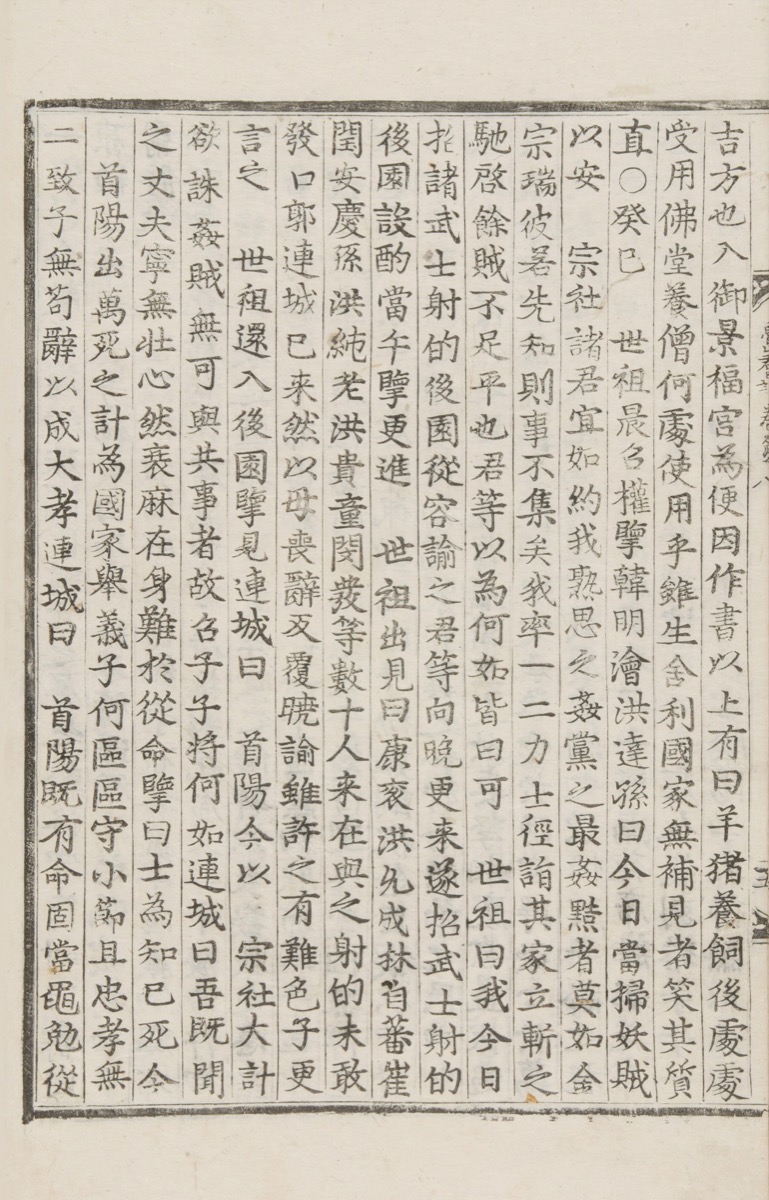 吉方也入御景福宮為便因作書以上有曰羊猪養飼後處處
受用佛堂養僧何處使用乎雖生舍利國家無補見者笑其質
直○癸巳 世祖晨召權擥韓明澮洪達孫曰今日當掃妖賊
以安 宗社諸君宜如約我熟思之姦黨之最姦黠者莫如金
宗瑞彼若先知則事不集矣我率一二力士徑詣其家立斬之
馳啓餘賊不足平也君等以為何如皆曰可 世祖曰我今日
招諸武士射的後園從容諭之君等向晚更来遂招武士射的
後園設酌當午擥更進 世祖出見曰康衮洪允成林自蕃崔
閏安慶孫洪純老洪貴童閔發等數十人来在與之射的未敢
發口郭連城已来然以母喪辭反覆曉諭雖許之有難色子更
言之 世祖還入後園擥見連城曰 首陽今以 宗社大計
欲誅姦賊無可與共事者故召子子將何如連城曰吾既聞
之丈夫寧無壯心然衰麻在身難於從命擥曰士為知已死今
首陽出萬死之計為國家舉義子何區區守小節且忠孝無
二致子無苟辭以成大孝連城曰 首陽既有命固當黽勉從